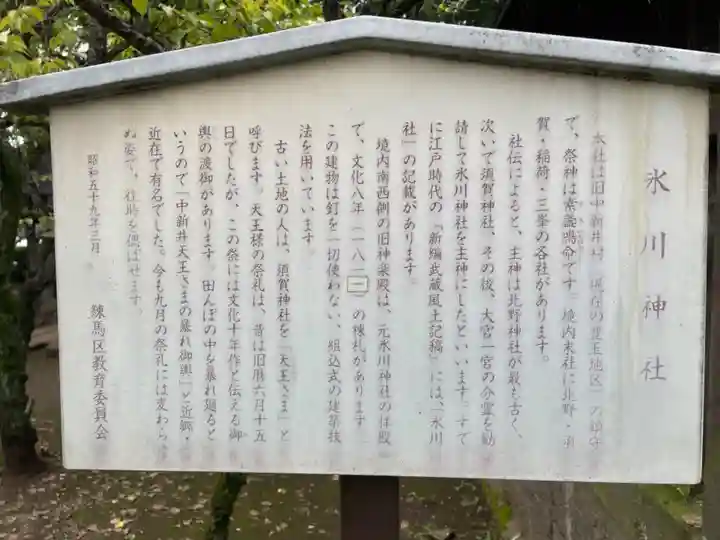 氷川神社
本社は旧中新井村(現在の豊玉地区)の鎮守
で、祭神は素盞嗚命です。境内末社に北野・須
賀・稲荷・三峯の各社があります。
社伝によると、主神は北野神社が最も古く、
次いで須賀神社、その後、大宮一宮の分霊を勧
請して氷川神社を主神にしたといいます。すで
に江戸時代の『新編武蔵風土記稿』には、「氷川
社」の記載があります。
境内南西側の旧神楽殿は、元氷川神社の拝殿
で、文化八年(一八一一)の棟札があります
この建物は釘を一切使わない、組込式の建築技
法を用いています。
古い土地の人は、須賀神社を「天王さま」と
呼びます。天王様の祭礼は、昔は旧暦六月十五
日でしたが、この祭には文化十年作と伝える御
輿の渡御があります。田んぼの中を暴れ廻ると
いうので「中新井天王さまの暴れ御輿」と近郷・
近在で有名でした。今も九月の祭礼には変わら
ぬ姿で、往時を偲ばせます。
昭和五十九年三月
練馬区教育委員会